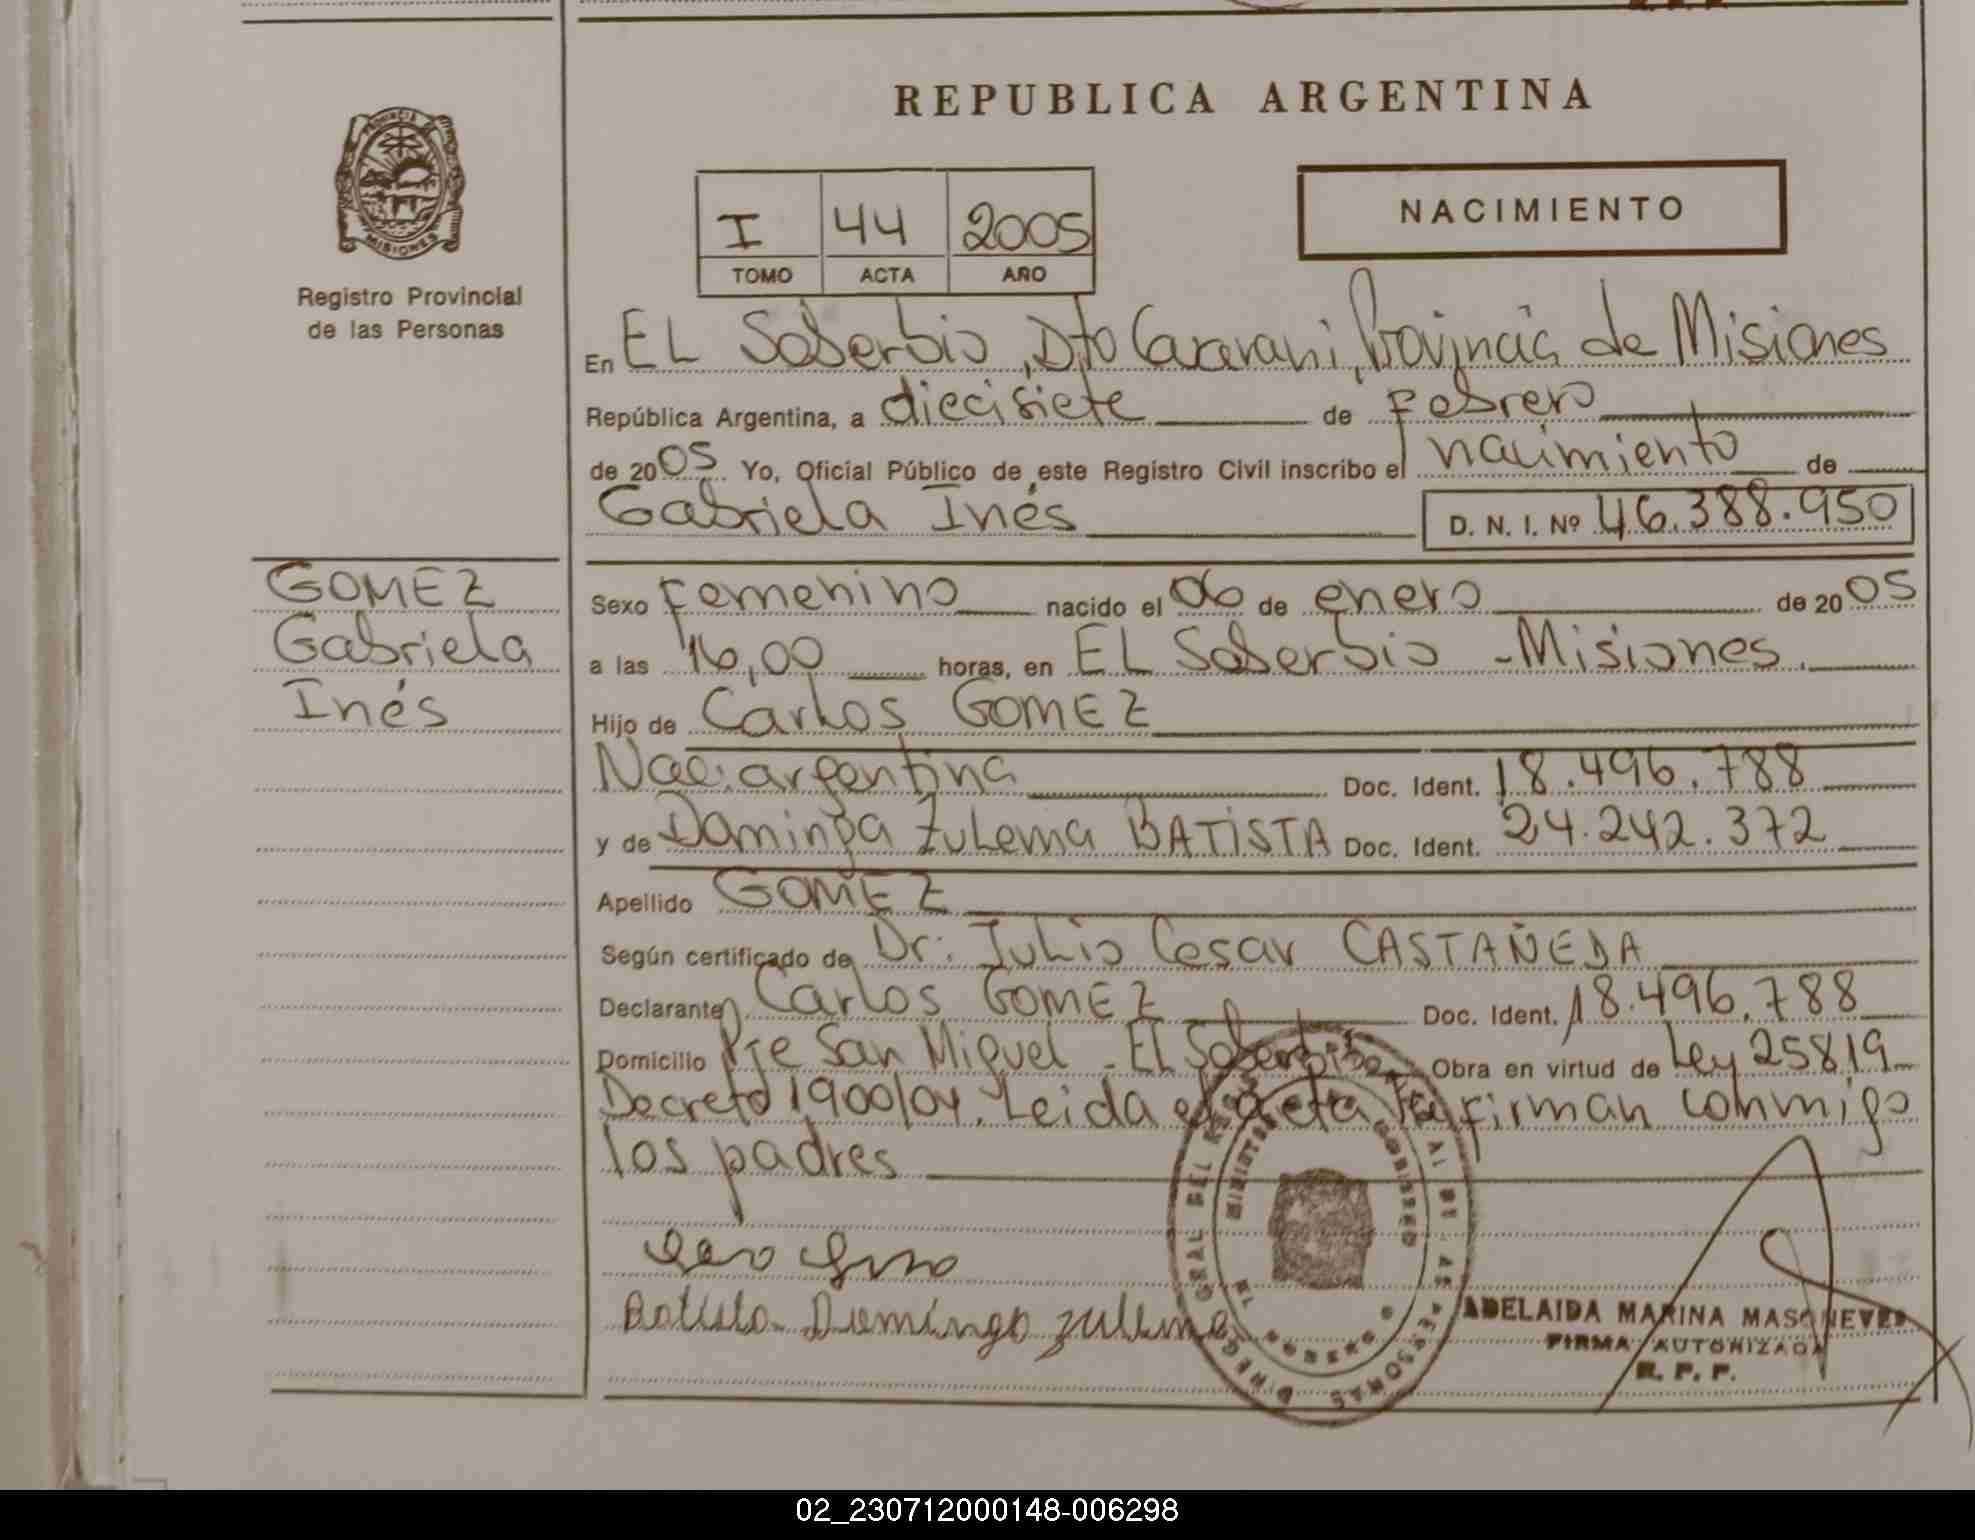 REPUBLICA ARGENTINA
PROVINCIA DE
MISIONES
Registro Provincial
de las Personas
I 44 2005
TOMO ACTA AÑO
NACIMIENTO
En EL Soberbio, Dto Guarani, Provincia de Misiones
República Argentina, a diecisiete de Febrero
de 2005 Yo, Oficial Público de este Registro Civil inscribo el nacimiento de
Gabriela Inés D. N. I. Nº 46.388.950
GOMEZ
Gabriela
Inés
Sexo Femenino nacido el 06 de enero de 2005
a las 16,00 horas, en EL Soberbio - Misiones.
Hijo de Carlos GOMEZ
Nac. argentina Doc. Ident. 18.496.788
y de Dominga Zulema BATISTA Doc. Ident. 24.242.372
Apellido GOMEZ
Según certificado de Dr: Julio Cesar CASTAÑEDA
Declarante Carlos GOMEZ Doc. Ident. 18.496.788
Domicilio Pje San Miguel - El Soberbio Obra en virtud de Ley 25819
Decreto 1900/04. Leida el acta la firman conmigo
los padres
Batista Dominga Zulema
ADELAIDA MARINA
FIRMA AUTORIZADA
R. P. P.
02_230712000148-006298